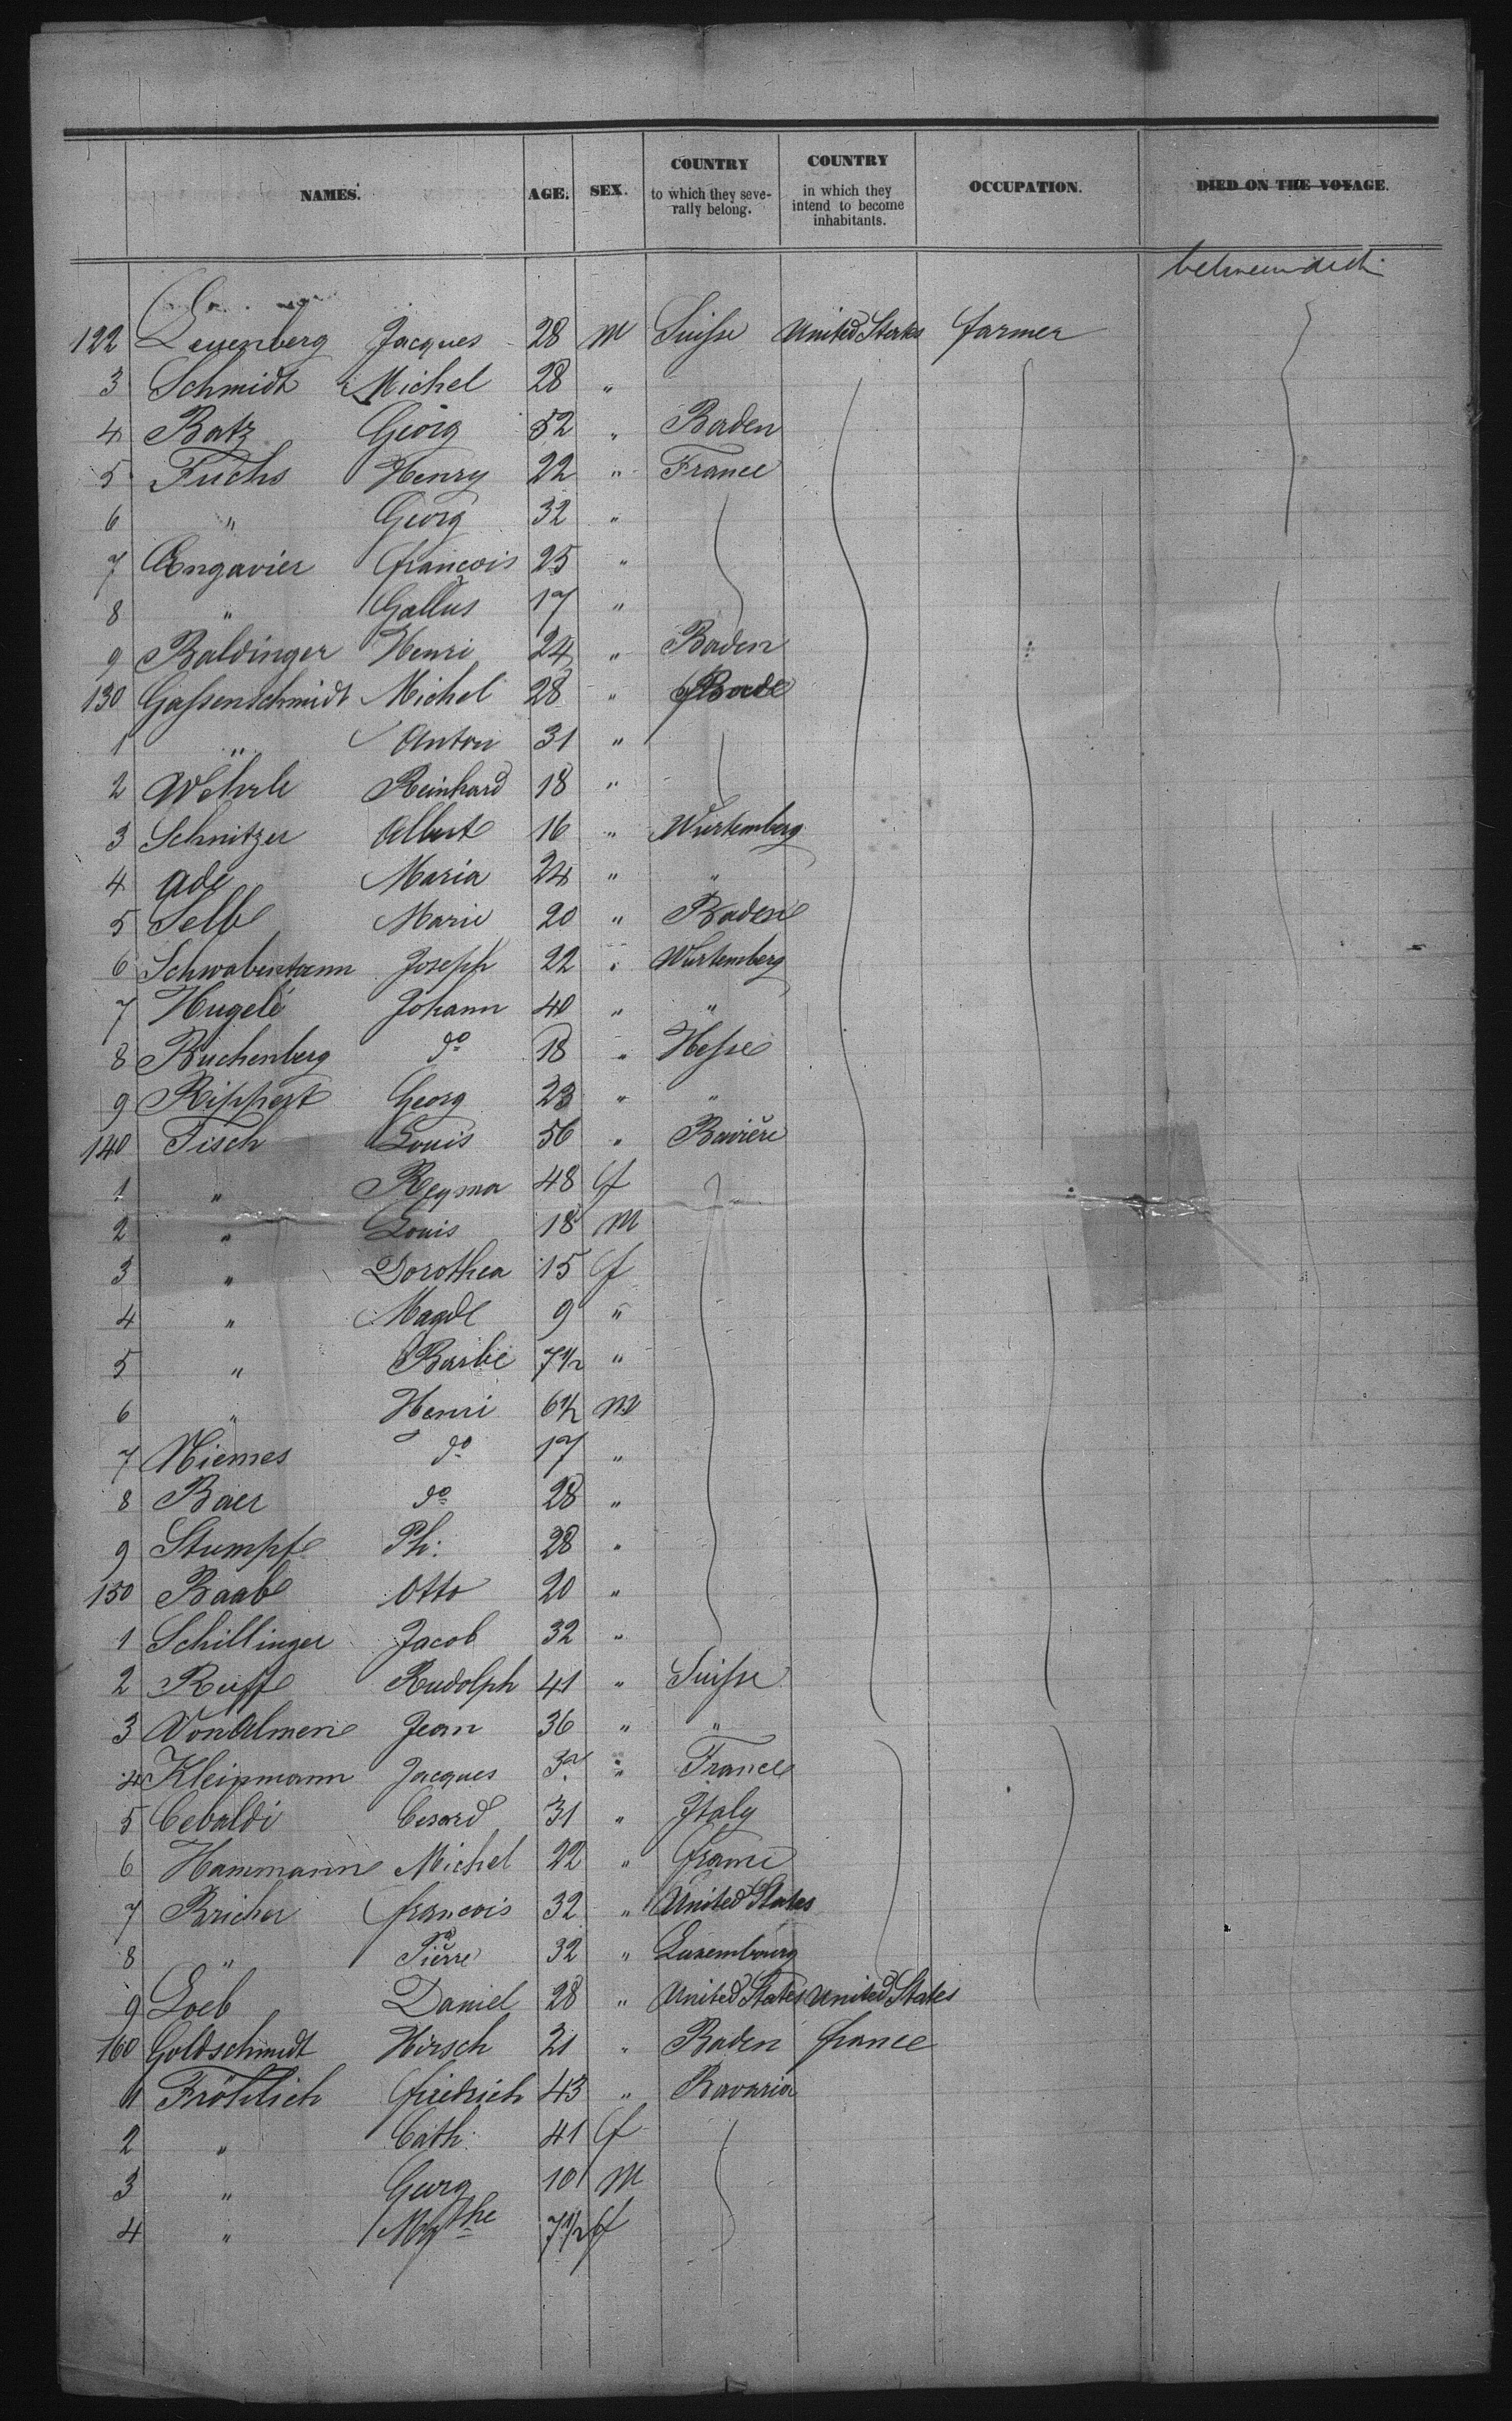 NAMES. AGE. SEX. COUNTRY to which they seve-rally belong. COUNTRY in which they intend to become inhabitants. OCCUPATION. DIED ON THE VOYAGE.
betweendeck
122 Leuenberg Jacques 28 M Suisse United States farmer
3 Schmidt Michel 28 "
4 Batz Georg 52 " Baden
5 Fuchs Henry 22 " France
6 " Georg 32 "
7 Angavier francois 25 "
8 " Gallus 17 "
9 Baldinger Henri 24 " Baden
130 Gassenschmidt Michel 28 " Bade
1 " Anton 31 "
2 Wehrle Reinhard 18 "
3 Schnitzer Albert 16 " Wurtemberg
4 Ade Maria 24 " "
5 Selb Marie 20 " Baden
6 Schwabentann Joseph 22 " Wurtemberg
7 Hugelé Johann 40 " "
8 Buchenberg do 18 " Hesse
9 Rippert Georg 23 " "
140 Fisch Louis 56 " Bavière
1 " Regina 48 f
2 " Louis 18 M
3 " Dorothea 15 f
4 " Magd 9 "
5 " Barbe 7 1/2 "
6 " Henri 6 1/2 M
7 Niemes do 17 "
8 Baer do 28 "
9 Stumpf Ph. 28 "
150 Raab Otto 20 "
1 Schillinger Jacob 32 "
2 Ruff Rudolph 41 " Suisse
3 Von Almen Jean 36 " "
4 Kleinmann Jacques " France
5 Cebaldi Cesard 31 " Italy
6 Hammann Michel 22 " france
7 Bricher francois 32 " United States
8 " Pierre 32 " Luxembourg
9 Loeb Daniel 28 " United States United States
160 Goldschmidt Hirsch 21 " Baden france
1 Fröhlich friedrich 43 " Bavaria
2 " Cath. 41 f
3 " Georg 10 M
4 " Mgthe 7 1/2 f